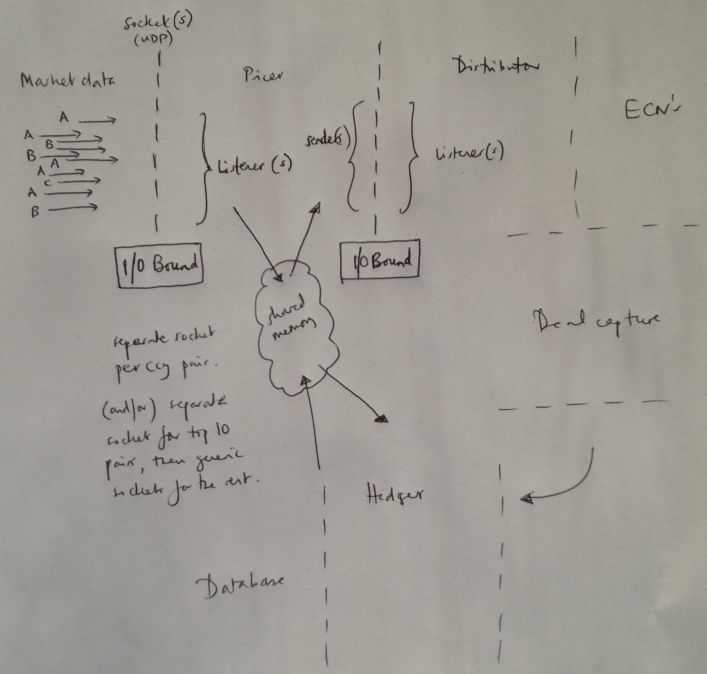 Socket(s)
(UDP)
Market data
Picer
Distributor
ECN's
A
A
B
B
A
A
C
A
B
Listener(s)
sender(s)
Listener(s)
I/O Bound
I/O Bound
shared
memory
Deal capture
separate socket
per ccy pair.
(and/or) separate
socket for top 10
pairs, then generic
sockets for the rest.
Hedger
Database